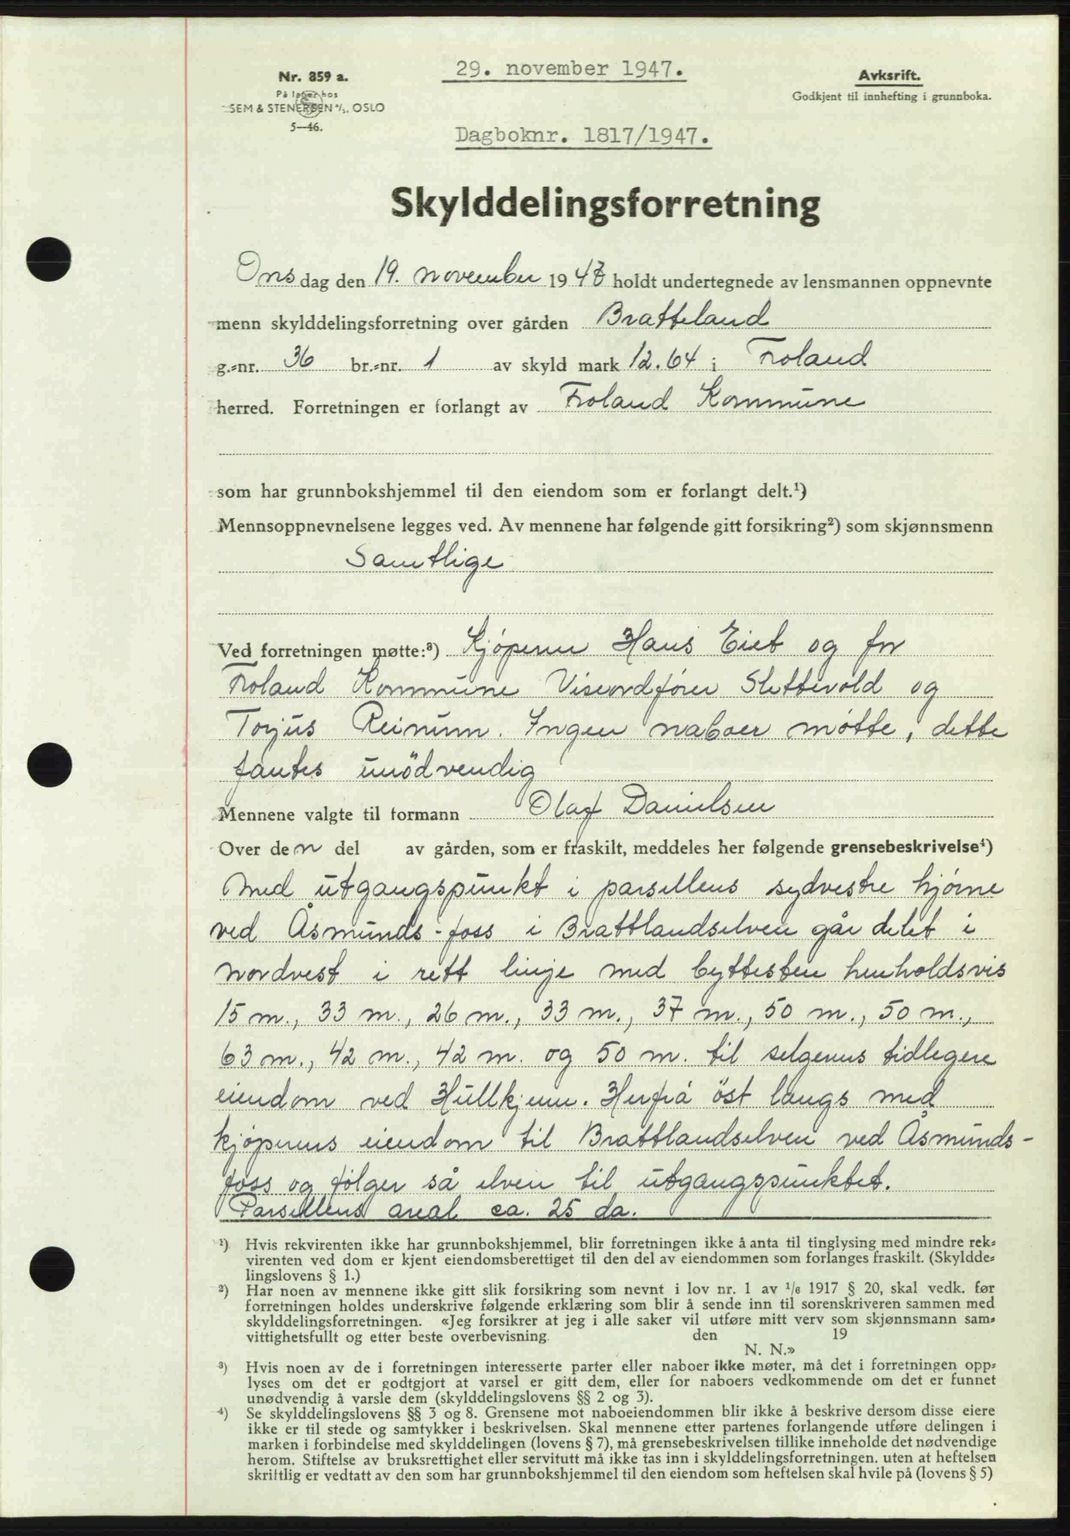 29. november 1947.
Nr. 859 a.
Avskrift.
På lager hos
Godkjent til innhefting i grunnboka.
SEM & STENERSEN A/S, OSLO
5—46.
Dagboknr. 1817/1947.
Skylddelingsforretning
Onsdag den 19. november 1947 holdt undertegnede av lensmannen oppnevnte
menn skylddelingsforretning over gården Bratteland
g.-nr. 36 br.-nr. 1 av skyld mark 12.64 i Froland
herred. Forretningen er forlangt av Froland Kommune
som har grunnbokshjemmel til den eiendom som er forlangt delt.¹)
Mennsoppnevnelsene legges ved. Av mennene har følgende gitt forsikring²) som skjønnsmenn
Samtlige
Ved forretningen møtte:³) Kjöperen Hans Eiet og for
Froland Kommune Viseordfører Slettevold og
Torjus Reinum. Ingen naboer møtte, dette
fantes unödvendig
Mennene valgte til formann Olaf Danielsen
Over den del av gården, som er fraskilt, meddeles her følgende grensebeskrivelse⁴)
Med utgangspunkt i parsellens sydvestre hjørne
ved Åsmunds-foss i Brattlandselven går delet i
nordvest i rett linje med byttesten henholdsvis
15 m., 33 m., 26 m., 33 m., 37 m., 50 m., 50 m.,
63 m., 42 m., 42 m. og 50 m. til selgerens tidlegere
eiendom ved Hullkjenn. Herfrå öst langs med
kjøperens eiendom til Brattlandselven ved Åsmunds-
foss og følger så elven til utgangspunktet.
Parsellens areal ca. 25 da.
¹) Hvis rekvirenten ikke har grunnbokshjemmel, blir forretningen ikke å anta til tinglysing med mindre rek-
virenten ved dom er kjent eiendomsberettiget til den del av eiendommen som forlanges fraskilt. (Skyldde-
lingslovens § 1.)
²) Har noen av mennene ikke gitt slik forsikring som nevnt i lov nr. 1 av 1/6 1917 § 20, skal vedk. før
forretningen holdes underskrive følgende erklæring som blir å sende inn til sorenskriveren sammen med
skylddelingsforretningen. «Jeg forsikrer at jeg i alle saker vil utføre mitt verv som skjønnsmann sam-
vittighetsfullt og etter beste overbevisning. den 19
N. N.»
³) Hvis noen av de i forretningen interesserte parter eller naboer ikke møter, må det i forretningen opp-
lyses om det er godtgjort at varsel er gitt dem, eller for naboers vedkommende om det er funnet
unødvendig å varsle dem (skylddelingslovens §§ 2 og 3).
⁴) Se skylddelingslovens §§ 3 og 8. Grensene mot naboeiendommen blir ikke å beskrive dersom disse eiere
ikke er til stede og samtykker i beskrivelsen. Skal mennene etter partenes forlangende utføre delingen i
marken i forbindelse med skylddelingen (lovens § 7), må grensebeskrivelsen tillike inneholde det nødvendige
herom. Stiftelse av bruksrettighet eller servitutt må ikke tas inn i skylddelingsforretningen. uten at heftelsen
skriftlig er vedtatt av den som har grunnbokshjemmel til den eiendom som heftelsen skal hvile på (lovens § 5)